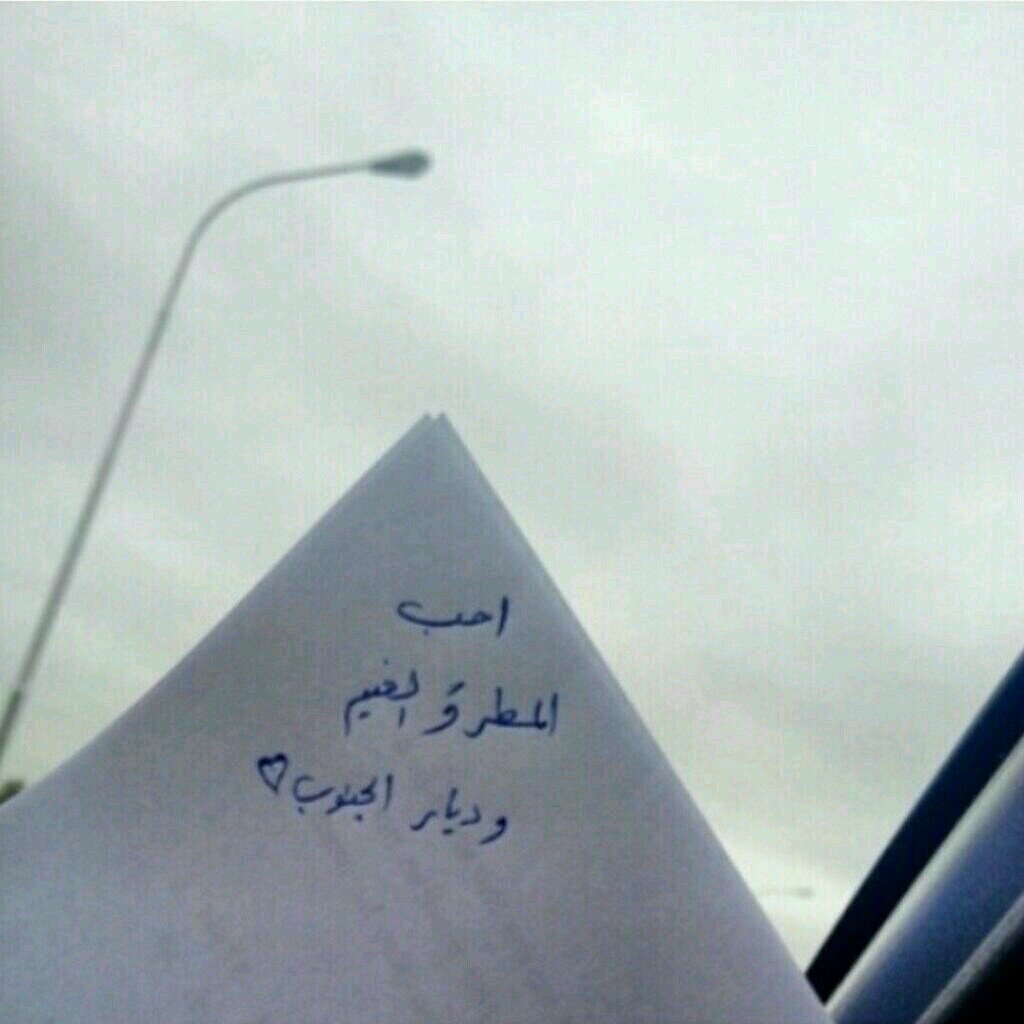 احب
المطر وَ الغيم
وديار الجنوب ♡